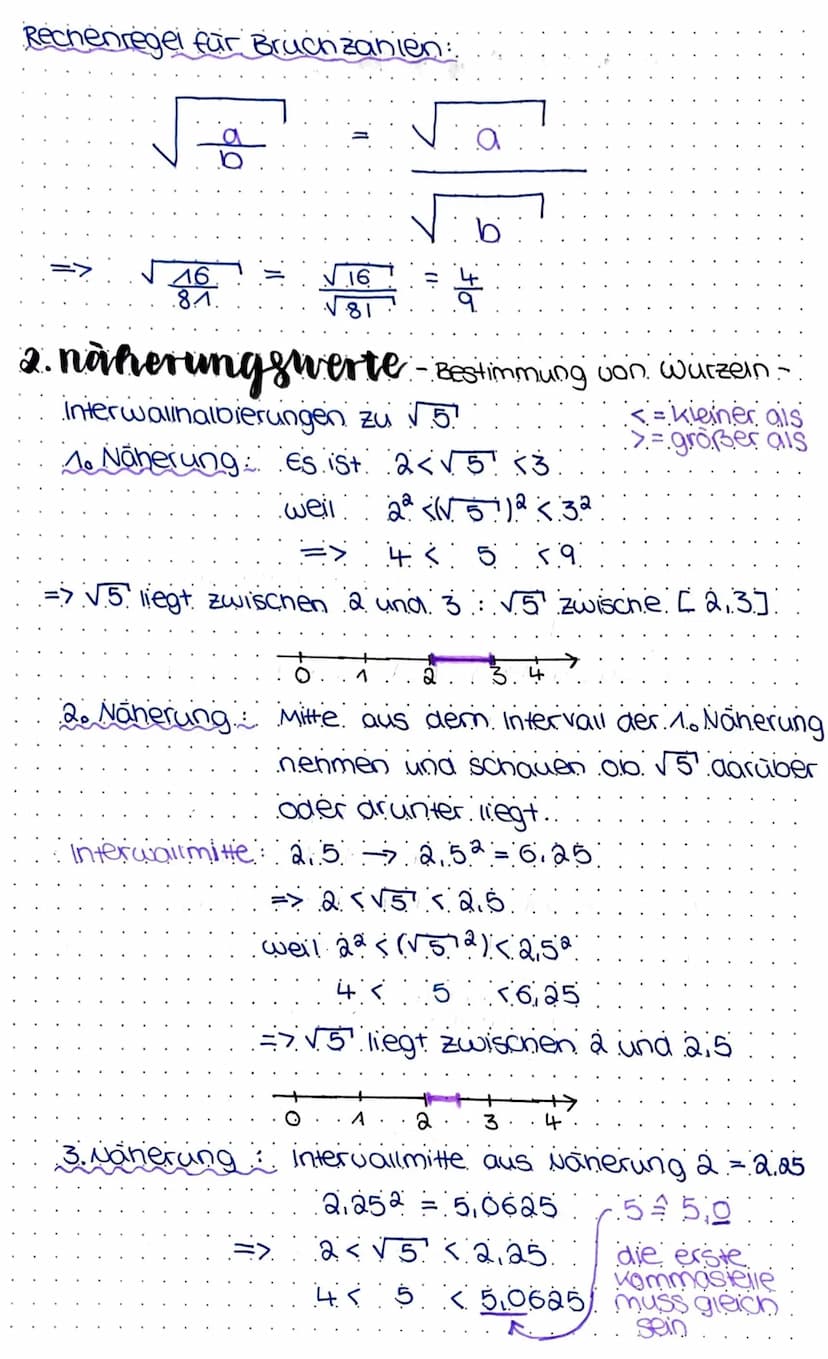 Rechenregel für Bruchzahlen:
√(a/b) = √a / √b
=> √(16/81) = √16 / √81 = 4/9
2. näherungswerte - Bestimmung von Wurzeln -
Interwallhalbierungen zu √5
< = kleiner als
> = größer als
1. Näherung: Es ist 2 < √5 < 3
weil 2² < (√5)² < 3²
=> 4 < 5 < 9
=> √5 liegt zwischen 2 und 3 : √5 zwische [2,3]
0 1 2 3 4
2. Näherung: Mitte aus dem Intervall der 1. Näherung
nehmen und schauen ob √5 darüber
oder drunter liegt.
Interwallmitte: 2,5 → 2,5² = 6,25
=> 2 < √5 < 2,5
weil 2² < (√5²) < 2,5²
4 < 5 < 6,25
=> √5 liegt zwischen 2 und 2,5
0 1 2 3 4
3. Näherung: Intervallmitte aus Näherung 2 = 2,25
2,25² = 5,0625
=> 2 < √5 < 2,25
4 < 5 < 5,0625
5 ≙ 5,0
die erste
Kommastelle
muss gleich
sein